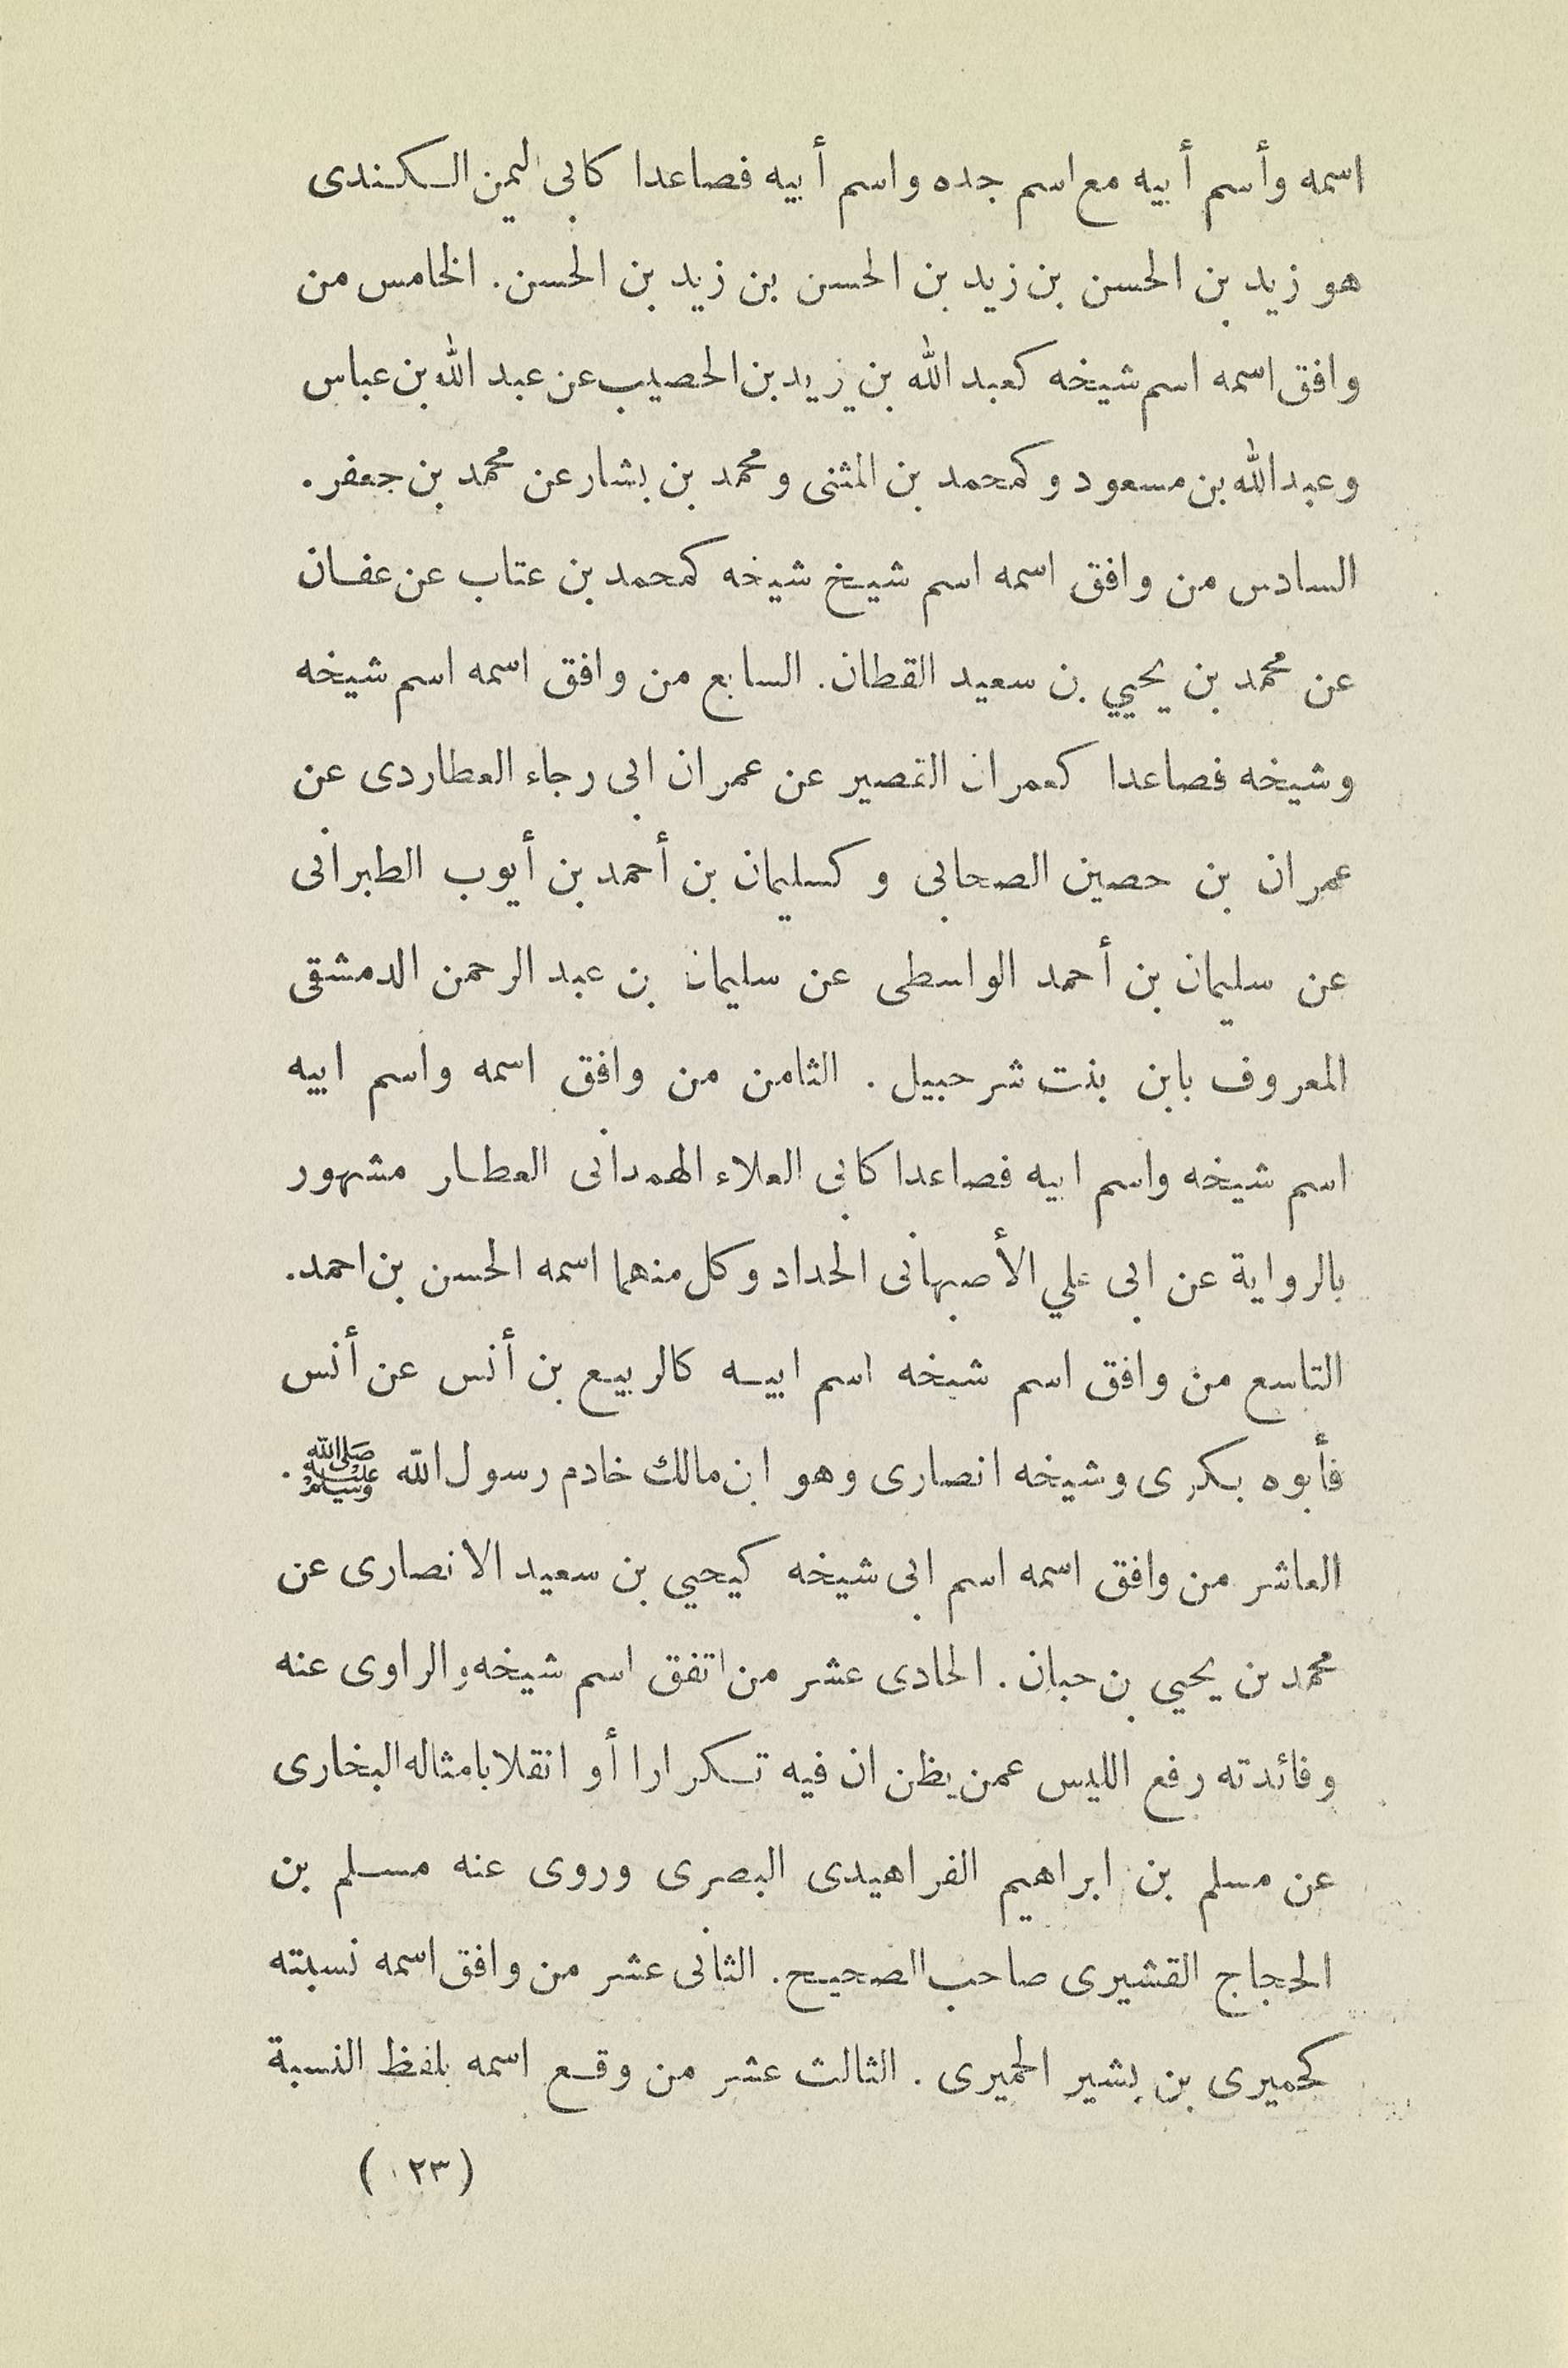 اسمه وأسم أبيه مع اسم جده واسم أبيه فصاعدا كابى اليمن الكندى
هو زيد بن الحسن بن زيد بن الحسن بن زيد بن الحسن. الخامس من
وافق اسمه اسم شيخه كعبد الله بن يزيد بن الحصيب عن عبد الله بن عباس
وعبد الله بن مسعود وكمحمد بن المثنى ومحمد بن بشار عن محمد بن جعفر.
السادس من وافق اسمه اسم شيخ شيخه كمحمد بن عتاب عن عفان
عن محمد بن يحيي بن سعيد القطان. السابع من وافق اسمه اسم شيخه
وشيخه فصاعدا كعمران القصير عن عمران ابى رجاء العطاردى عن
عمران بن حصين الصحابى وكسليمان بن أحمد بن أيوب الطبرانى
عن سليمان بن أحمد الواسطى عن سليمان بن عبد الرحمن الدمشقى
المعروف بابن بنت شرحبيل. الثامن من وافق اسمه واسم ابيه
اسم شيخه واسم ابيه فصاعدا كابى العلاء الهمدانى العطار مشهور
بالرواية عن ابى علي الأصبهانى الحداد وكل منهما اسمه الحسن بن احمد.
التاسع من وافق اسم شيخه اسم ابيه كالربيع بن أنس عن أنس
فأبوه بكرى وشيخه انصارى وهو ابن مالك خادم رسول الله ﷺ.
العاشر من وافق اسمه اسم ابى شيخه كيحيي بن سعيد الانصارى عن
محمد بن يحيي بن حبان. الحادى عشر من اتفق اسم شيخه والراوى عنه
وفائدته رفع اللبس عمن يظن ان فيه تكرارا أو انقلابا مثاله البخارى
عن مسلم بن ابراهيم الفراهيدى البصرى وروى عنه مسلم بن
الحجاج القشيرى صاحب الصحيح. الثانى عشر من وافق اسمه نسبته
كحميرى بن بشير الحميرى. الثالث عشر من وقع اسمه بلفظ النسبة
(٢٣)